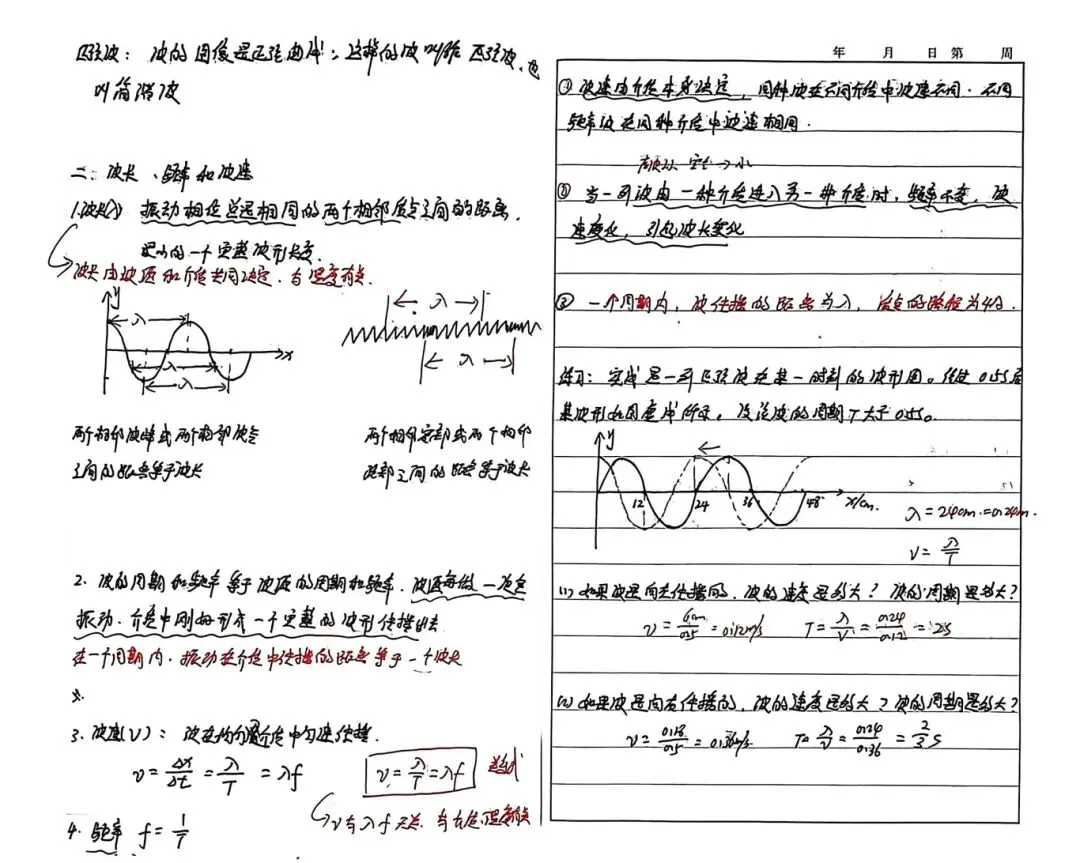 正弦波：波的图像是正弦曲线，这样的波叫做正弦波，也
叫简谐波
二、波长、频率和波速
1.波长(λ) 振动相位总是相同的两个相邻质点之间的距离，
一个完整波形长度.
波长由波源和介质共同决定，与温度有关.
y
λ
λ
λ
x
λ
λ
两个相邻波峰或两个相邻波谷
之间的距离等于波长
两个相邻密部或两个相邻
疏部之间的距离等于波长
2. 波的周期和频率等于波源的周期和频率. 波源每做一次全
振动. 介质中刚好形成一个完整的波形传播出去
在一个周期内. 振动在介质中传播的距离等于一个波长
3. 波速(V)：波在均匀介质中匀速传播.
v=Δx/Δt=λ/T=λf
v=λ/T=λf
v与λ f 无关. 与介质.温度有关
4. 频率 f=1/T
年 月 日 第 周
① 波速由介质本身决定，同种波在不同介质中波速不同. 不同
频率波在同种介质中波速相同.
② 当一列波由一种介质进入另一种介质时，频率不变，波
速变化，引起波长变化
③ 一个周期内，波传播的距离为λ，质点的路程为4A.
练习：实线是一列正弦波在某一时刻的波形图。经过0.5s后
其波形如图虚线所示。设该波的周期T大于0.5s。
y
←
12 24 36 48 x/cm.
λ=24cm.=0.24m.
v=λ/T
(1) 如果波是向左传播的，波的速度是多大？波的周期是多大？
v=6cm/0.5=0.12m/s T=λ/v=0.24/0.12=2s
(2) 如果波是向右传播的，波的速度是多大？波的周期是多大？
v=0.18/0.5=0.36m/s T=λ/v=0.24/0.36=2/3s